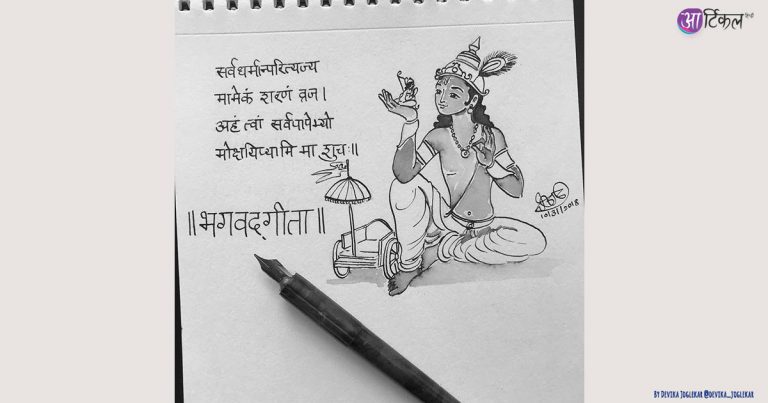 आर्टिकल हिन्दी
सर्वधर्मान्परित्यज्य
मामेकं शरणं व्रज।
अहं त्वां सर्वपापेभ्यो
मोक्षयिष्यामि मा शुचः॥
॥भगवद्‌गीता॥
10/3/2018
BY DEVIKA JOGLEKAR @DEVIKA_JOGLEKAR